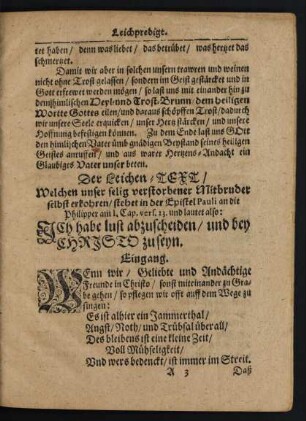 Leichpredigt.
tet haben / denn was liebet / das betrübet / was hertzet das
schmertzet.
Damit wir aber in solchen unsern trawren und weinen
nicht ohne Trost gelassen / sondern im Geist gestärcket und in
Gott erfrewet werden mögen / so last uns mit einander hin zu
dem himlischen Heyl- und Trost-Brunn / dem heiligen
Worte Gottes eilen / und daraus schöpffen Trost / dadurch
wir unsere Seele erquicken / unser Hertz stärcken / und unsere
Hoffnung befestigen können. Zu dem Ende last uns GOtt
den himlischen Vater umb gnädigen Beystand seines heiligen
Geistes anruffen / und aus warer Hertzens-Andacht ein
Gläubiges Vater unser beten.
Der Leichen-TEXT /
Welchen unser selig verstorbener Mitbruder
selbst erkohren / stehet in der Epistel Pauli an die
Philipper am 1. Cap. vers. 23. und lautet also:
ICh habe lust abzuscheiden / und bey
CHRISTO zu seyn.
Eingang.
WEnn wir / Geliebte und Andächtige
Freunde in Christo / sonst miteinander zu Gra-
be gehen / so pflegen wir offt auff dem Wege zu
singen:
Es ist alhier ein Jammerthal /
Angst / Noth / und Trübsal überall /
Des bleibens ist eine kleine Zeit /
Voll Mühseligkeit /
Und wers bedenckt / ist immer im Streit.
A 3 Daß